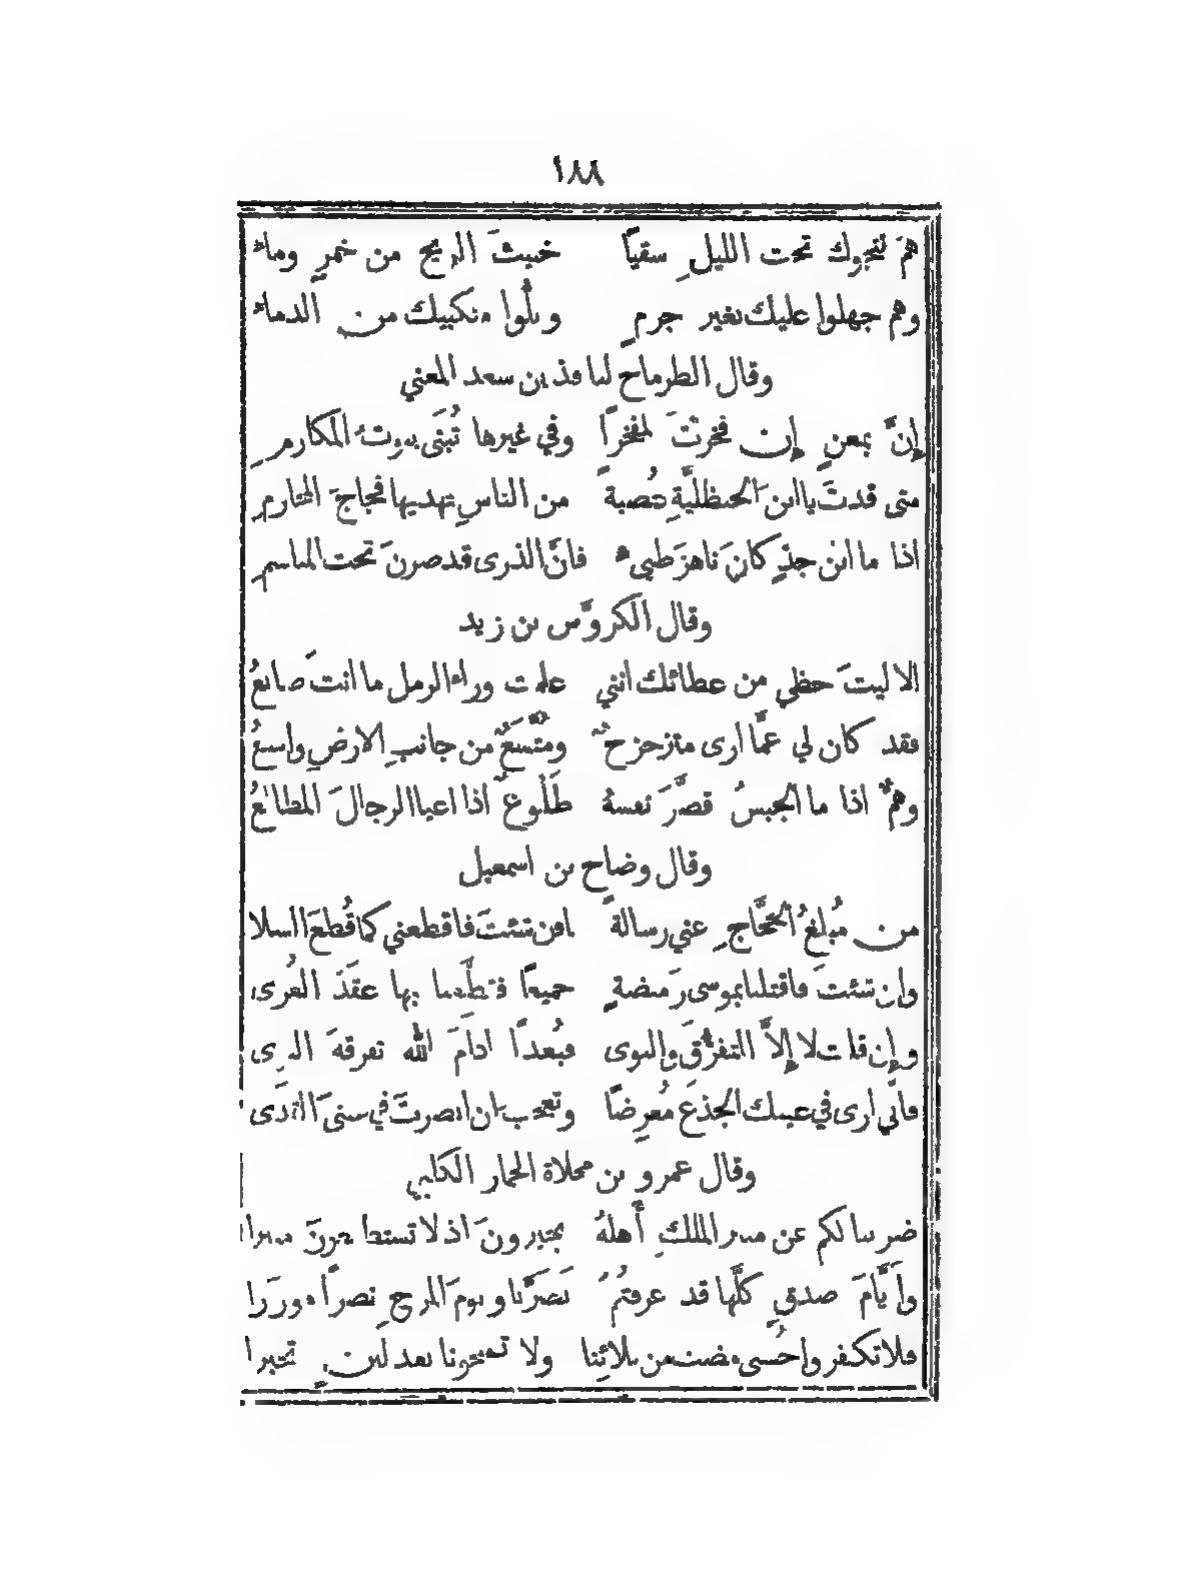 ١٨٨
همَ نتجوك تحت الليلِ سقيًا خبيثَ الريح من خمرٍ وماءِ
وهم جهلوا عليك بغير جرمٍ وبلُّوا منكبيك من الدماءِ
وقال الطرماح لنافذ بن سعد المعني
إنَّ بمعنٍ إن فخرتَ لمفخرًا وفي غيرها تُبنَى بيوتُ المكارمِ
متى قدتَ يا ابن الحنظليَّةِ عُصبةً من الناسِ تهديها فجاجَ المخارمِ
اذا ما ابن جذٍّ كانَ ناهزَ طيىءٍ فانَّ الذرى قد صرنَ تحت المناسمِ
وقال الكروَّس بن زيد
الا ليتَ حظي من عطائك انني علمت وراء الرمل ما انتَ صانعُ
فقد كان لي عمَّا ارى متزحزحٌ ومُتَّسَعٌ من جانبِ الارضِ واسعُ
وهمٌّ اذا ما الجبسُ قصَّرَ نفسهُ طَلُوعٌ اذا اعيا الرجالَ المطالعُ
وقال وضاح بن اسمعيل
من مُبلغُ الحجَّاجِ عني رسالةً فان شئتَ فاقطعني كما قُطعَ السلا
وان شئتَ فاقتلنا بموسى رَميضةٍ جميعًا فقطِّعنا بها عقَدَ العُرى
وإن قلت لا إلاَّ التفرُّقَ والنوى فبُعدًا ادامَ الله تفرقةَ النوى
فانّي ارى في عينك الجذعَ مُعرِضًا وتعجب ان ابصرتَ في عينيَ القذى
وقال عمرو بن مخلاة الحمار الكلبي
ضربنا لكم عن منبر الملكِ أهلهُ بجيرونَ اذ لا تستطيعونَ منبرا
وأيَّامَ صدقٍ كلَّها قد عرفتمُ نَصَرْنا ويومَ المرجِ نصرًا مؤزَّرا
فلا تكفروا حُسنى مضت من بلائِنا ولا تمنحونا بعد لينٍ تجبرا